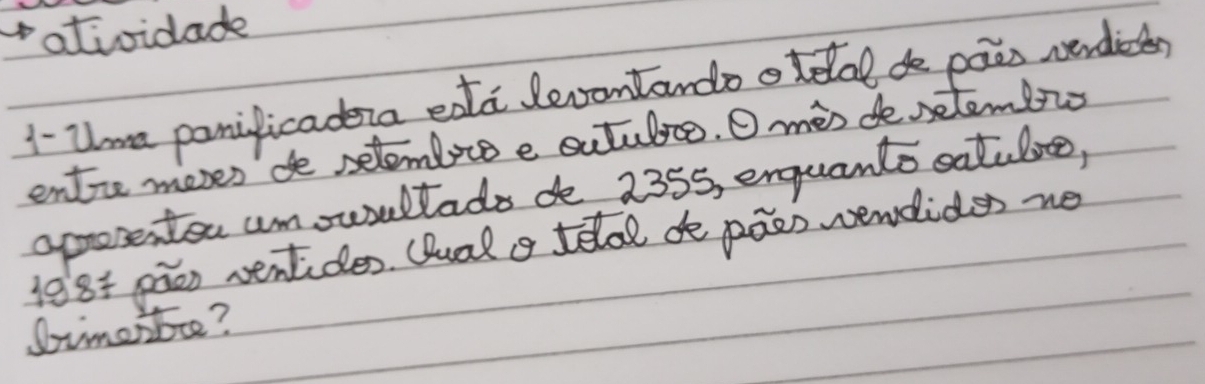 → atividade
1- Uma panificadora está levantando o total de pães vendidos
entre meses de setembro e outubro. O mês de setembro
apresentou um resultado de 2355, enquanto outubro,
1987 pães ventidos. Qual o total de pães vendidos no
bimestre?